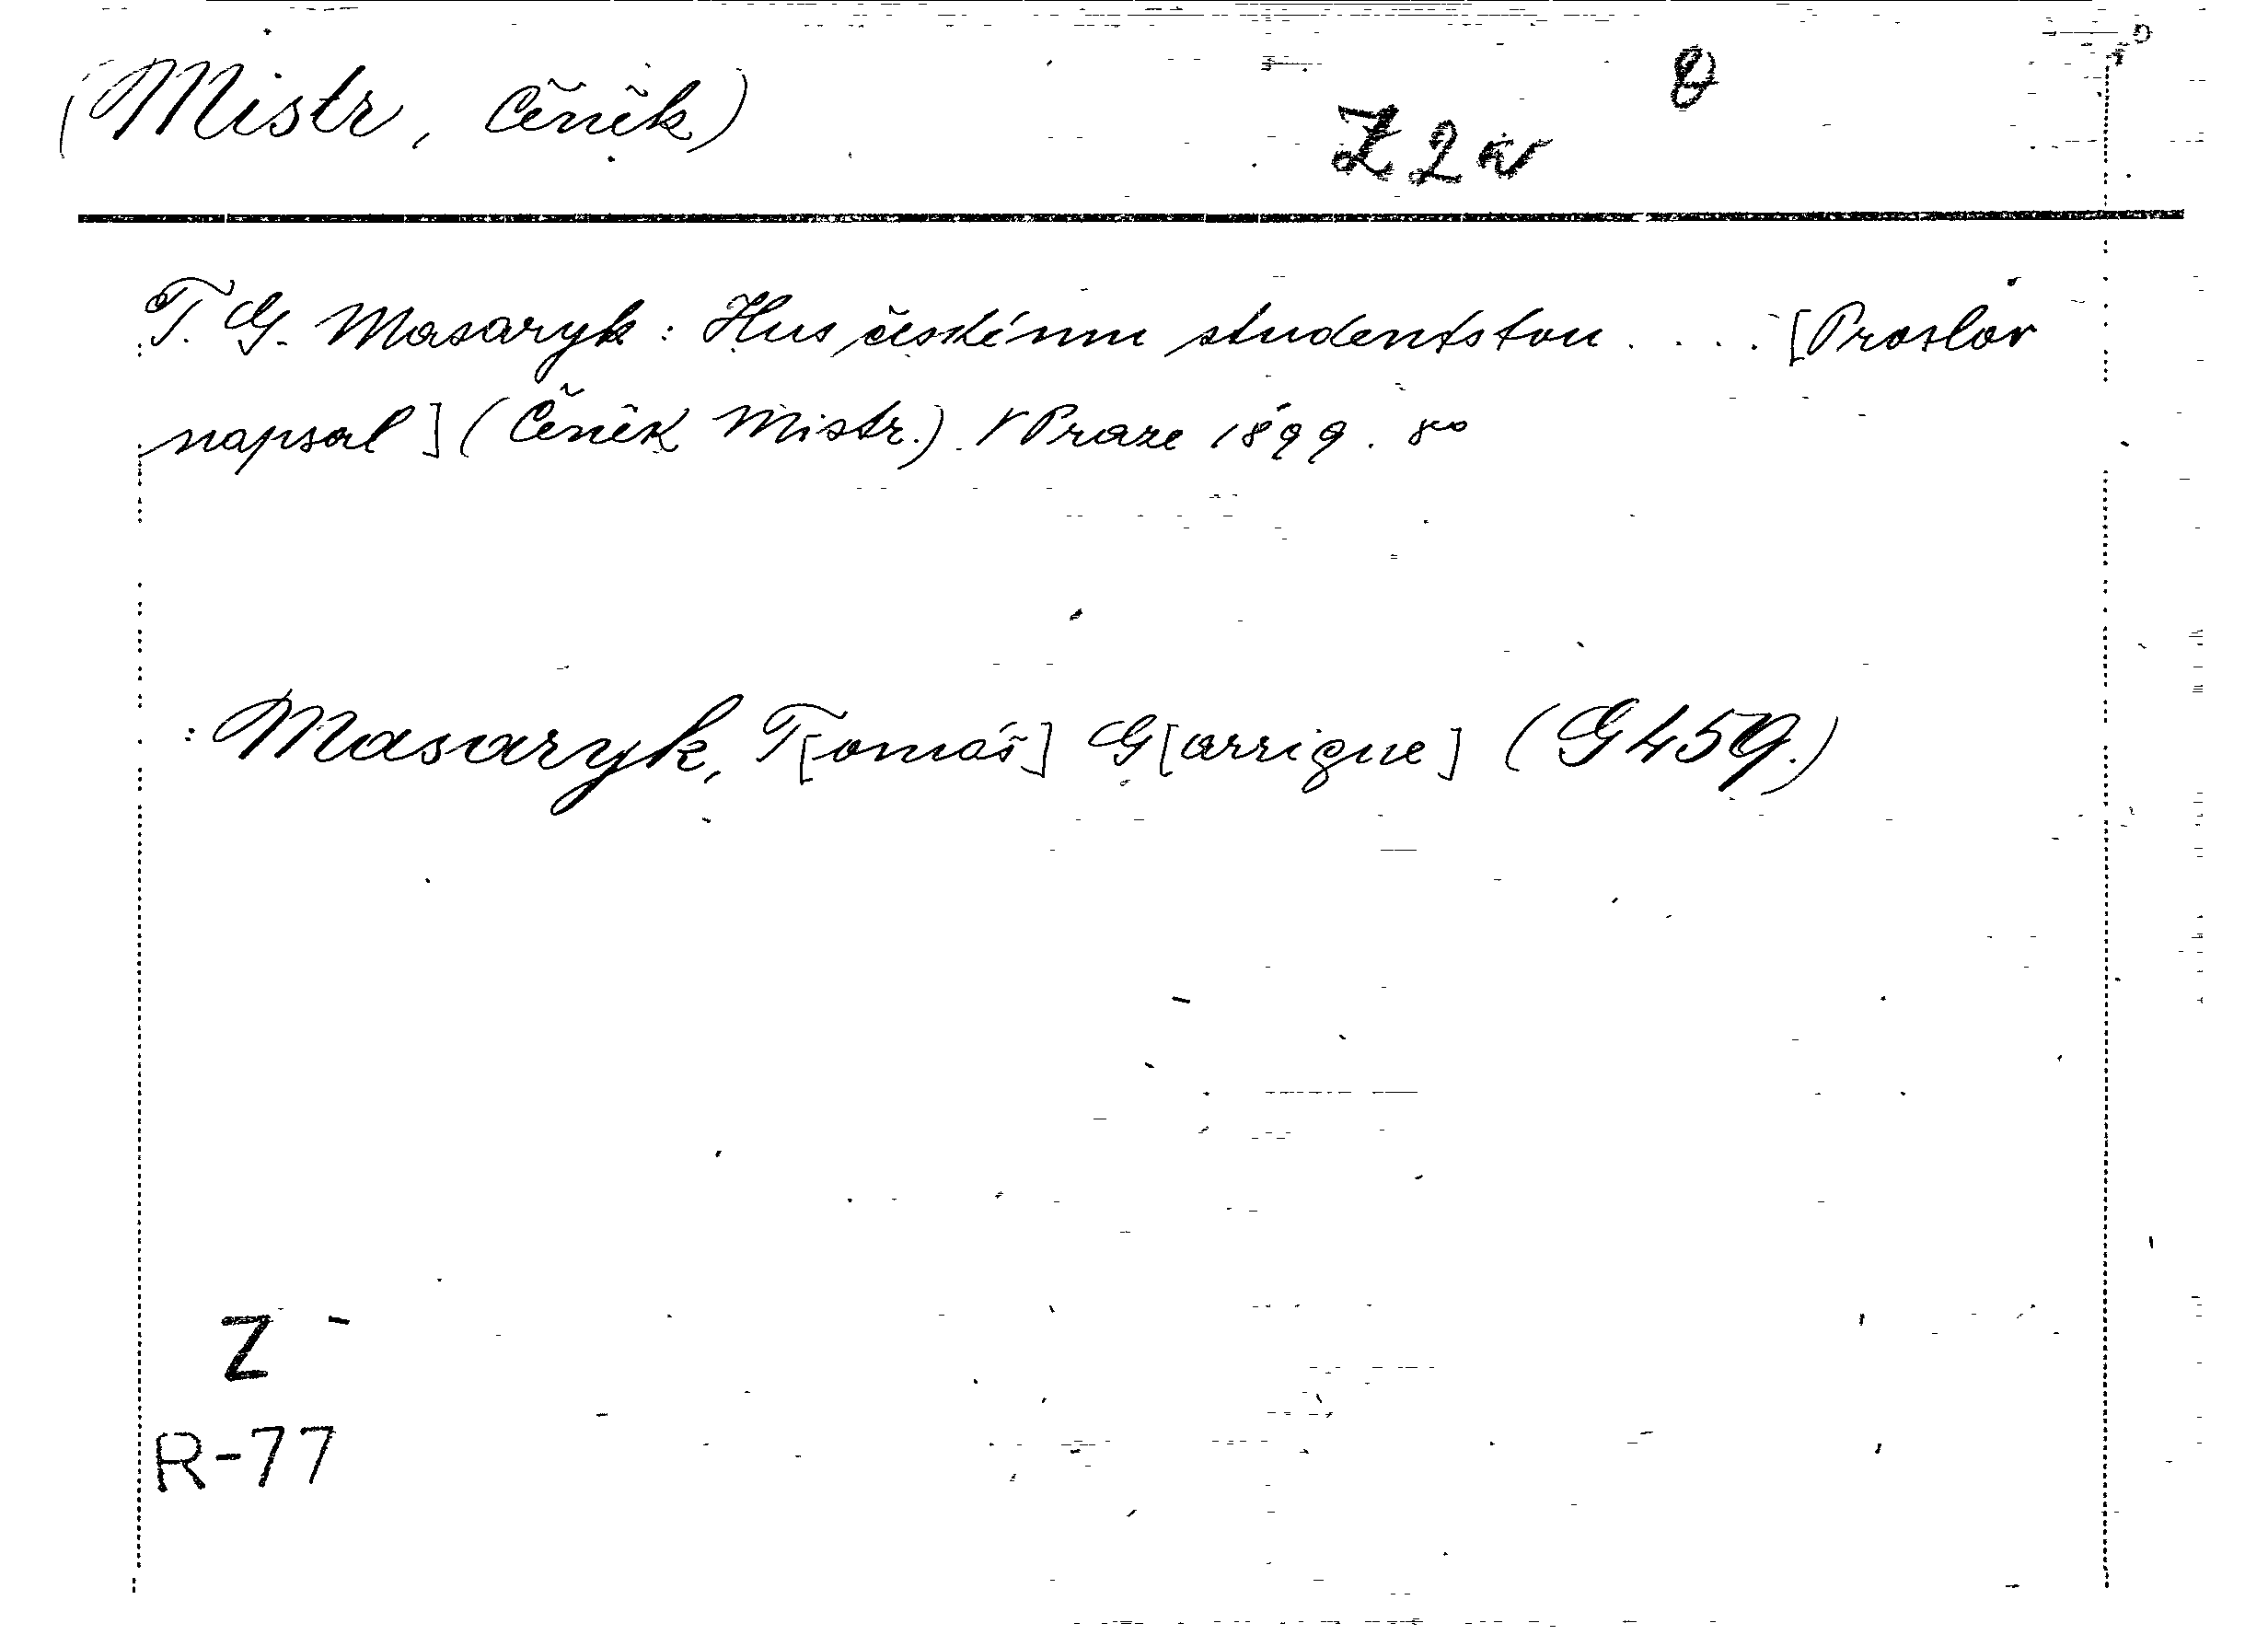 (Mistr, Čeněk)
Z 2 w
T. G. Masaryk: Hus českému studentstvu. . . . [Proslov
napsal] (Čeněk Mistr.) V Praze 1899. 8vo
: Masaryk, T[omáš] G[arrigue] (G 459.)
Z -
R-77